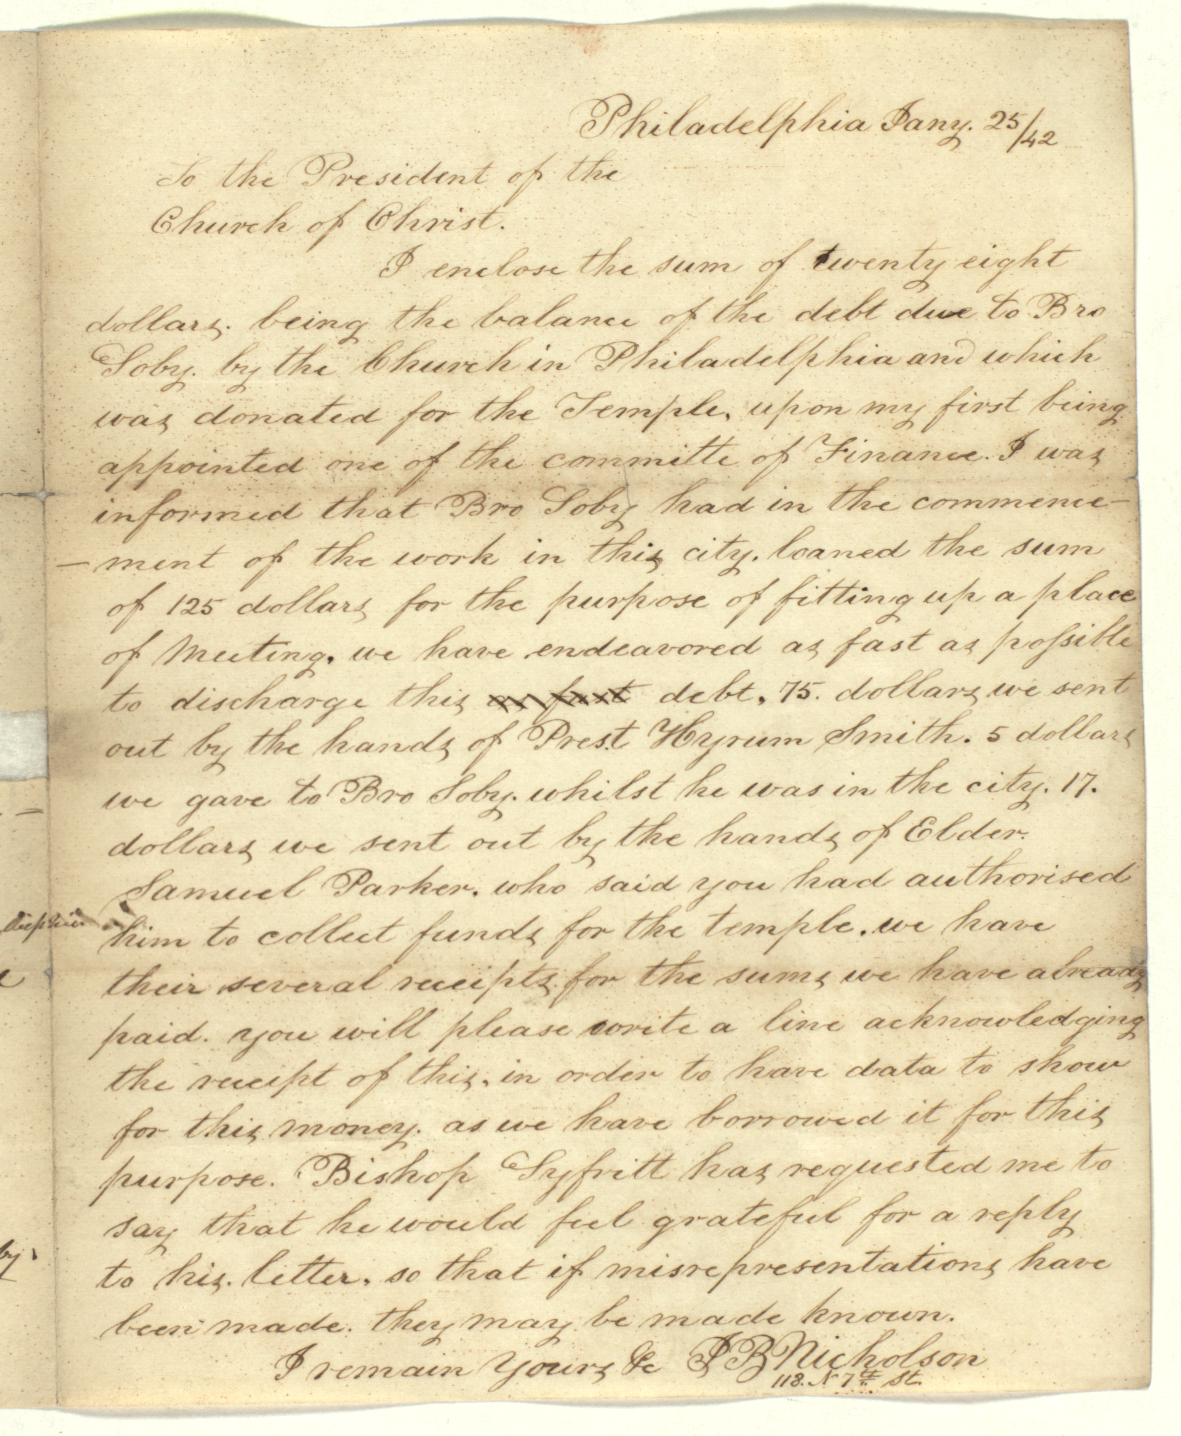 Philadelphia Jany. 25/42
To the President of the
Church of Christ.
I enclose the sum of twenty eight
dollars. being the balance of the debt due to Bro
Soby. by the Church in Philadelphia and which
was donated for the Temple, upon my first being
appointed one of the committe of Finance. I was
informed that Bro Soby had in the commence-
-ment of the work in this city. loaned the sum
of 125 dollars for the purpose of fitting up a place
of Meeting, we have endeavored as fast as possible
to discharge this as fast debt, 75. dollars we sent
out by the hands of Prest Hyrum Smith. 5 dollars
we gave to Bro Soby. whilst he was in the city. 17.
dollars we sent out by the hands of Elder.
Samuel Parker. who said you had authorised
him to collect funds for the temple. we have
their several receipts for the sums we have already
paid. you will please write a line acknowledging
the receipt of this, in order to have data to show
for this money. as we have borrowed it for this
purpose. Bishop Syfritt has requested me to
say that he would feel grateful for a reply
to his. letter, so that if misrepresentations have
been made. they may be made known.
I remain Yours &c J B Nicholson
118. N 7th St.
by.